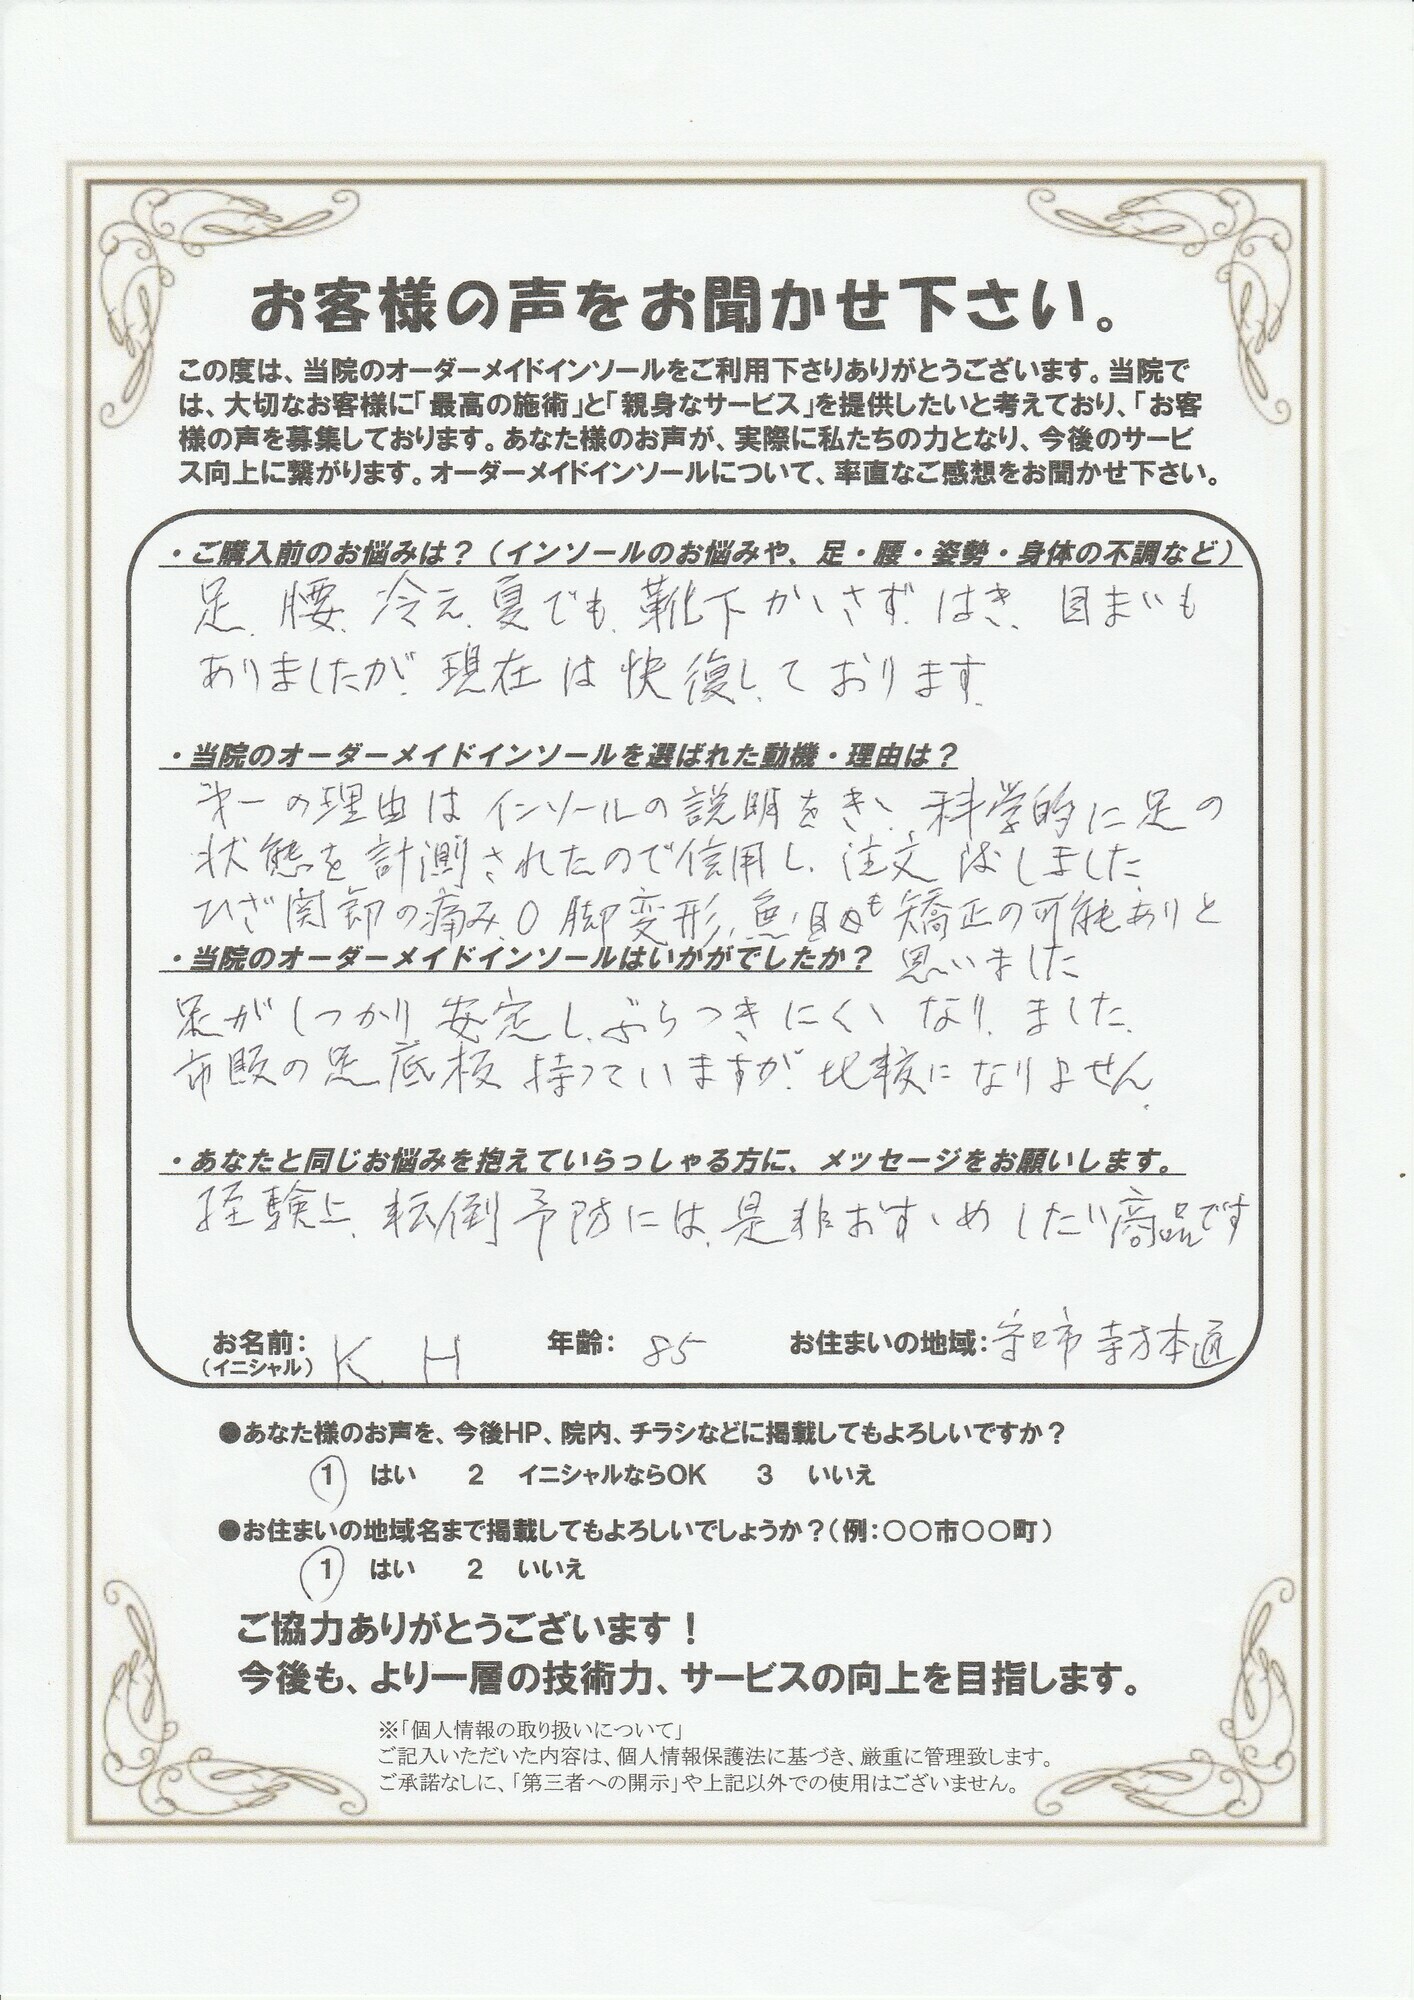 お客様の声をお聞かせ下さい。
この度は、当院のオーダーメイドインソールをご利用下さりありがとうございます。当院で
は、大切なお客様に「最高の施術」と「親身なサービス」を提供したいと考えており、「お客
様の声を募集しております。あなた様のお声が、実際に私たちの力となり、今後のサービ
ス向上に繋がります。オーダーメイドインソールについて、率直なご感想をお聞かせ下さい。
・ご購入前のお悩みは？（インソールのお悩みや、足・腰・姿勢・身体の不調など）
足、腰、冷え、夏でも、靴下かゝさず、はき、目まいも
ありましたが、現在は快復しております。
・当院のオーダーメイドインソールを選ばれた動機・理由は？
第一の理由はインソールの説明をきゝ、科学的に足の
状態を計測されたので信用し、注文しました
ひざ関節の痛み、O脚変形、魚の目も矯正の可能ありと
思いました
・当院のオーダーメイドインソールはいかがでしたか？
足がしっかり、安定し、ぶらつきにくゝなり、ました、
市販の足底板持っていますが、比較になりません、
・あなたと同じお悩みを抱えていらっしゃる方に、メッセージをお願いします。
経験上、転倒予防には、是非おすゝめしたい商品です
お名前： K. H 年齢： 85 お住まいの地域：守口市 寺方本通
（イニシャル）
●あなた様のお声を、今後HP、院内、チラシなどに掲載してもよろしいですか？
1 はい 2 イニシャルならOK 3 いいえ
●お住まいの地域名まで掲載してもよろしいでしょうか？（例：〇〇市〇〇町）
1 はい 2 いいえ
ご協力ありがとうございます！
今後も、より一層の技術力、サービスの向上を目指します。
※「個人情報の取り扱いについて」
ご記入いただいた内容は、個人情報保護法に基づき、厳重に管理致します。
ご承諾なしに、「第三者への開示」や上記以外での使用はございません。